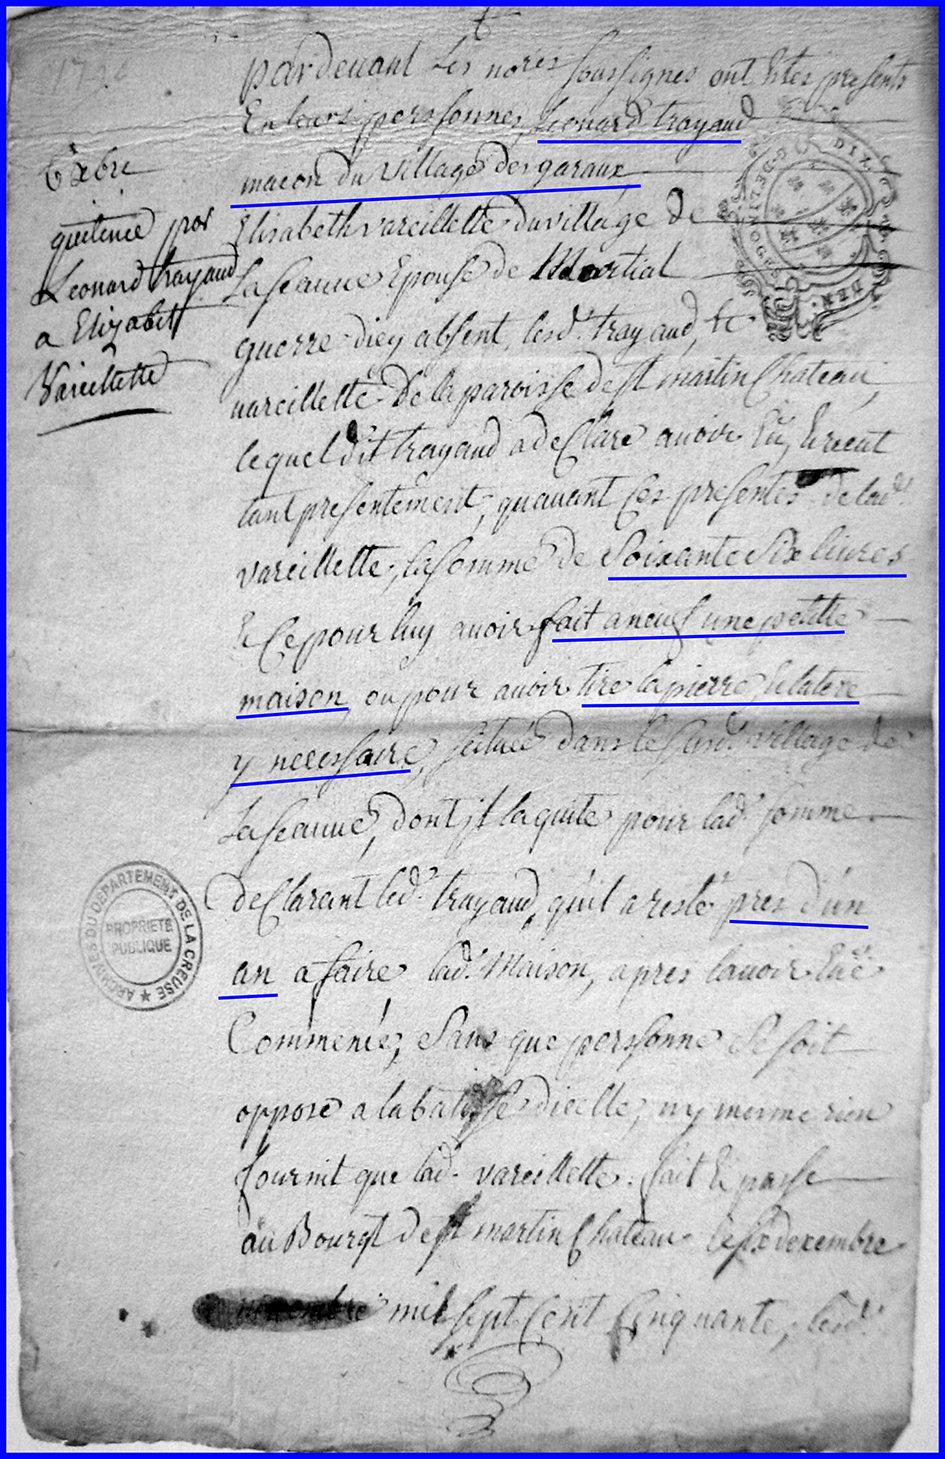 pardevant les no.res soussignes ont Estes presents
En leurs personnes, Leonard trayaud
macon du village des garaux
Elisabeth vareillette du village de
Laseaune Epouse de Martial
guerre d'icy absent, lesd. trayaud, et
vareillette de la paroisse de st martin Chateau,
lequel dit trayaud a deClare avoir Eü, et receut
tant presentement, qu'avant Ces presentes de lad.
vareillette, la somme de Soixante Six livres
et Ce pour luy avoir fait a neuf une petitte
maison, ou pour avoir tire la pierre, et latere
y necessaire, scituée dans le susd. village de
Laseaune, dont il laquite pour lad. somme
deClarant led. trayaud, qu'il a resté pres d'ún
an a faire lad. Maison, apres lavoir
Commence, Sans que personne Se soit
opposé a la batisse d'icelle, ny mesme rien
fournit que lad. vareillette. fait et passe
aú Bourgt de st martin Chateau le six dexembre
mil sept Cent Cinquante, lesd.
8bre
quitence por
Leonard trayaud
a Elizabet
Vareillette
ARCHIVES DU DEPARTEMENT DE LA CREUSE
PROPRIETE
PUBLIQUE